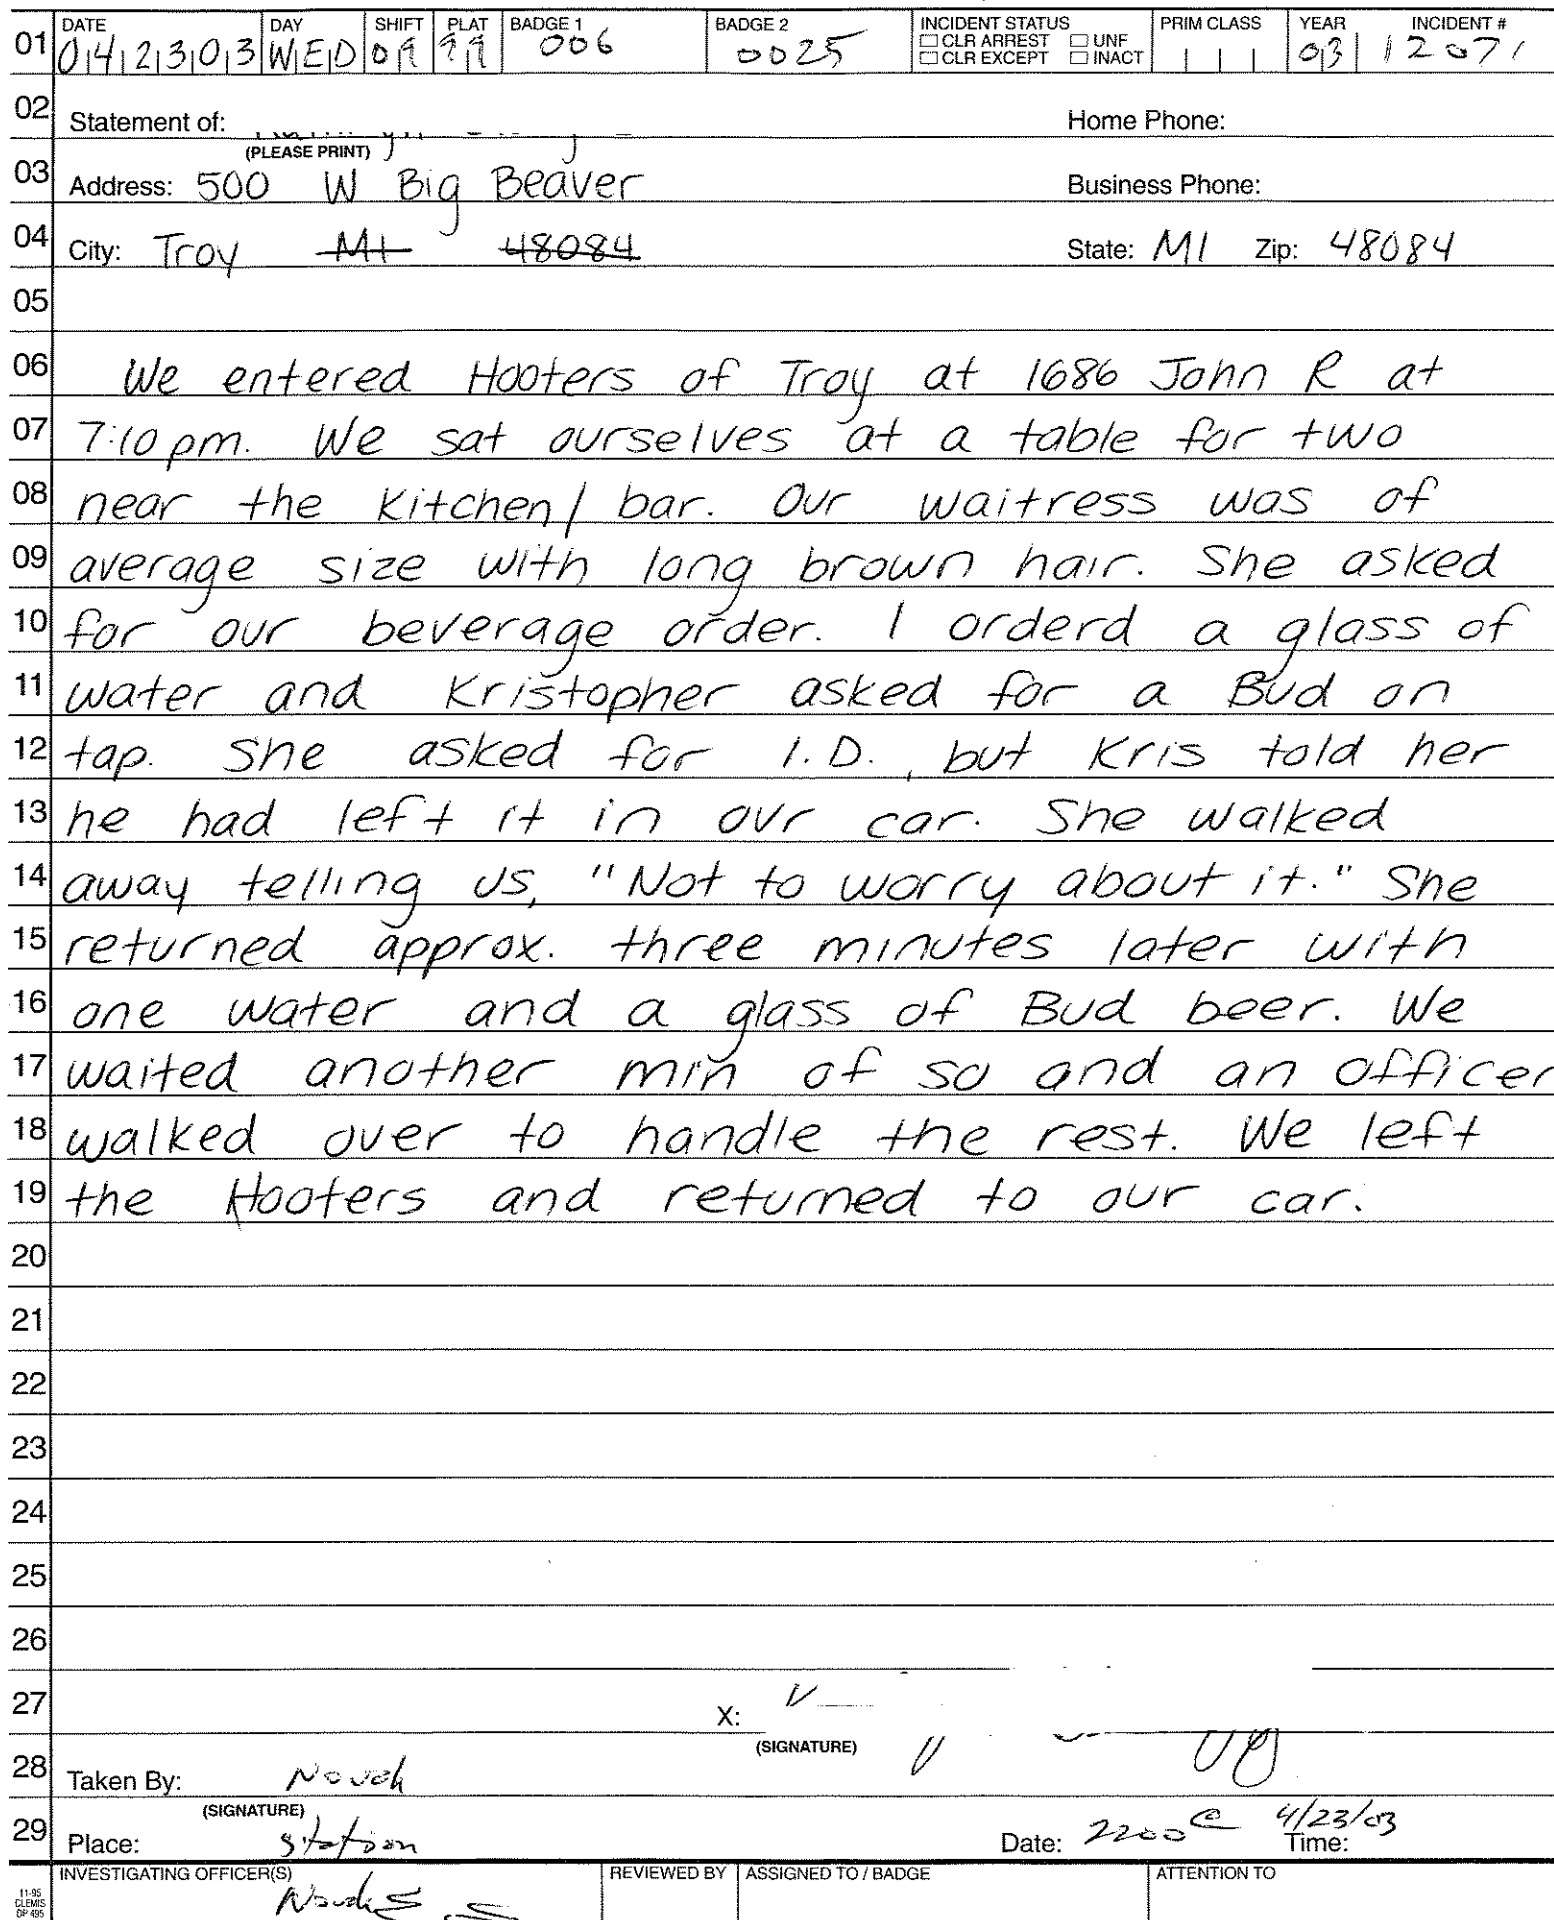 DATE DAY SHIFT PLAT BADGE 1 BADGE 2 INCIDENT STATUS PRIM CLASS YEAR INCIDENT #
01 042303 WED 006 0025 CLR ARREST UNF CLR EXCEPT INACT 03 12071
02 Statement of: Home Phone:
(PLEASE PRINT)
03 Address: 500 W Big Beaver Business Phone:
04 City: Troy MI 48084 State: MI Zip: 48084
05
06 We entered Hooters of Troy at 1686 John R at
07 7:10pm. We sat ourselves at a table for two
08 near the kitchen/bar. Our waitress was of
09 average size with long brown hair. She asked
10 for our beverage order. I orderd a glass of
11 water and Kristopher asked for a Bud on
12 tap. She asked for I.D., but Kris told her
13 he had left it in our car. She walked
14 away telling us, "Not to worry about it." She
15 returned approx. three minutes later with
16 one water and a glass of Bud beer. We
17 waited another min of so and an officer
18 walked over to handle the rest. We left
19 the Hooters and returned to our car.
20
21
22
23
24
25
26
27 X:
(SIGNATURE)
28 Taken By:
(SIGNATURE)
29 Place: station Date: 2200 4/23/03 Time:
INVESTIGATING OFFICER(S) REVIEWED BY ASSIGNED TO / BADGE ATTENTION TO
11-95
CLEMIS
DP 495